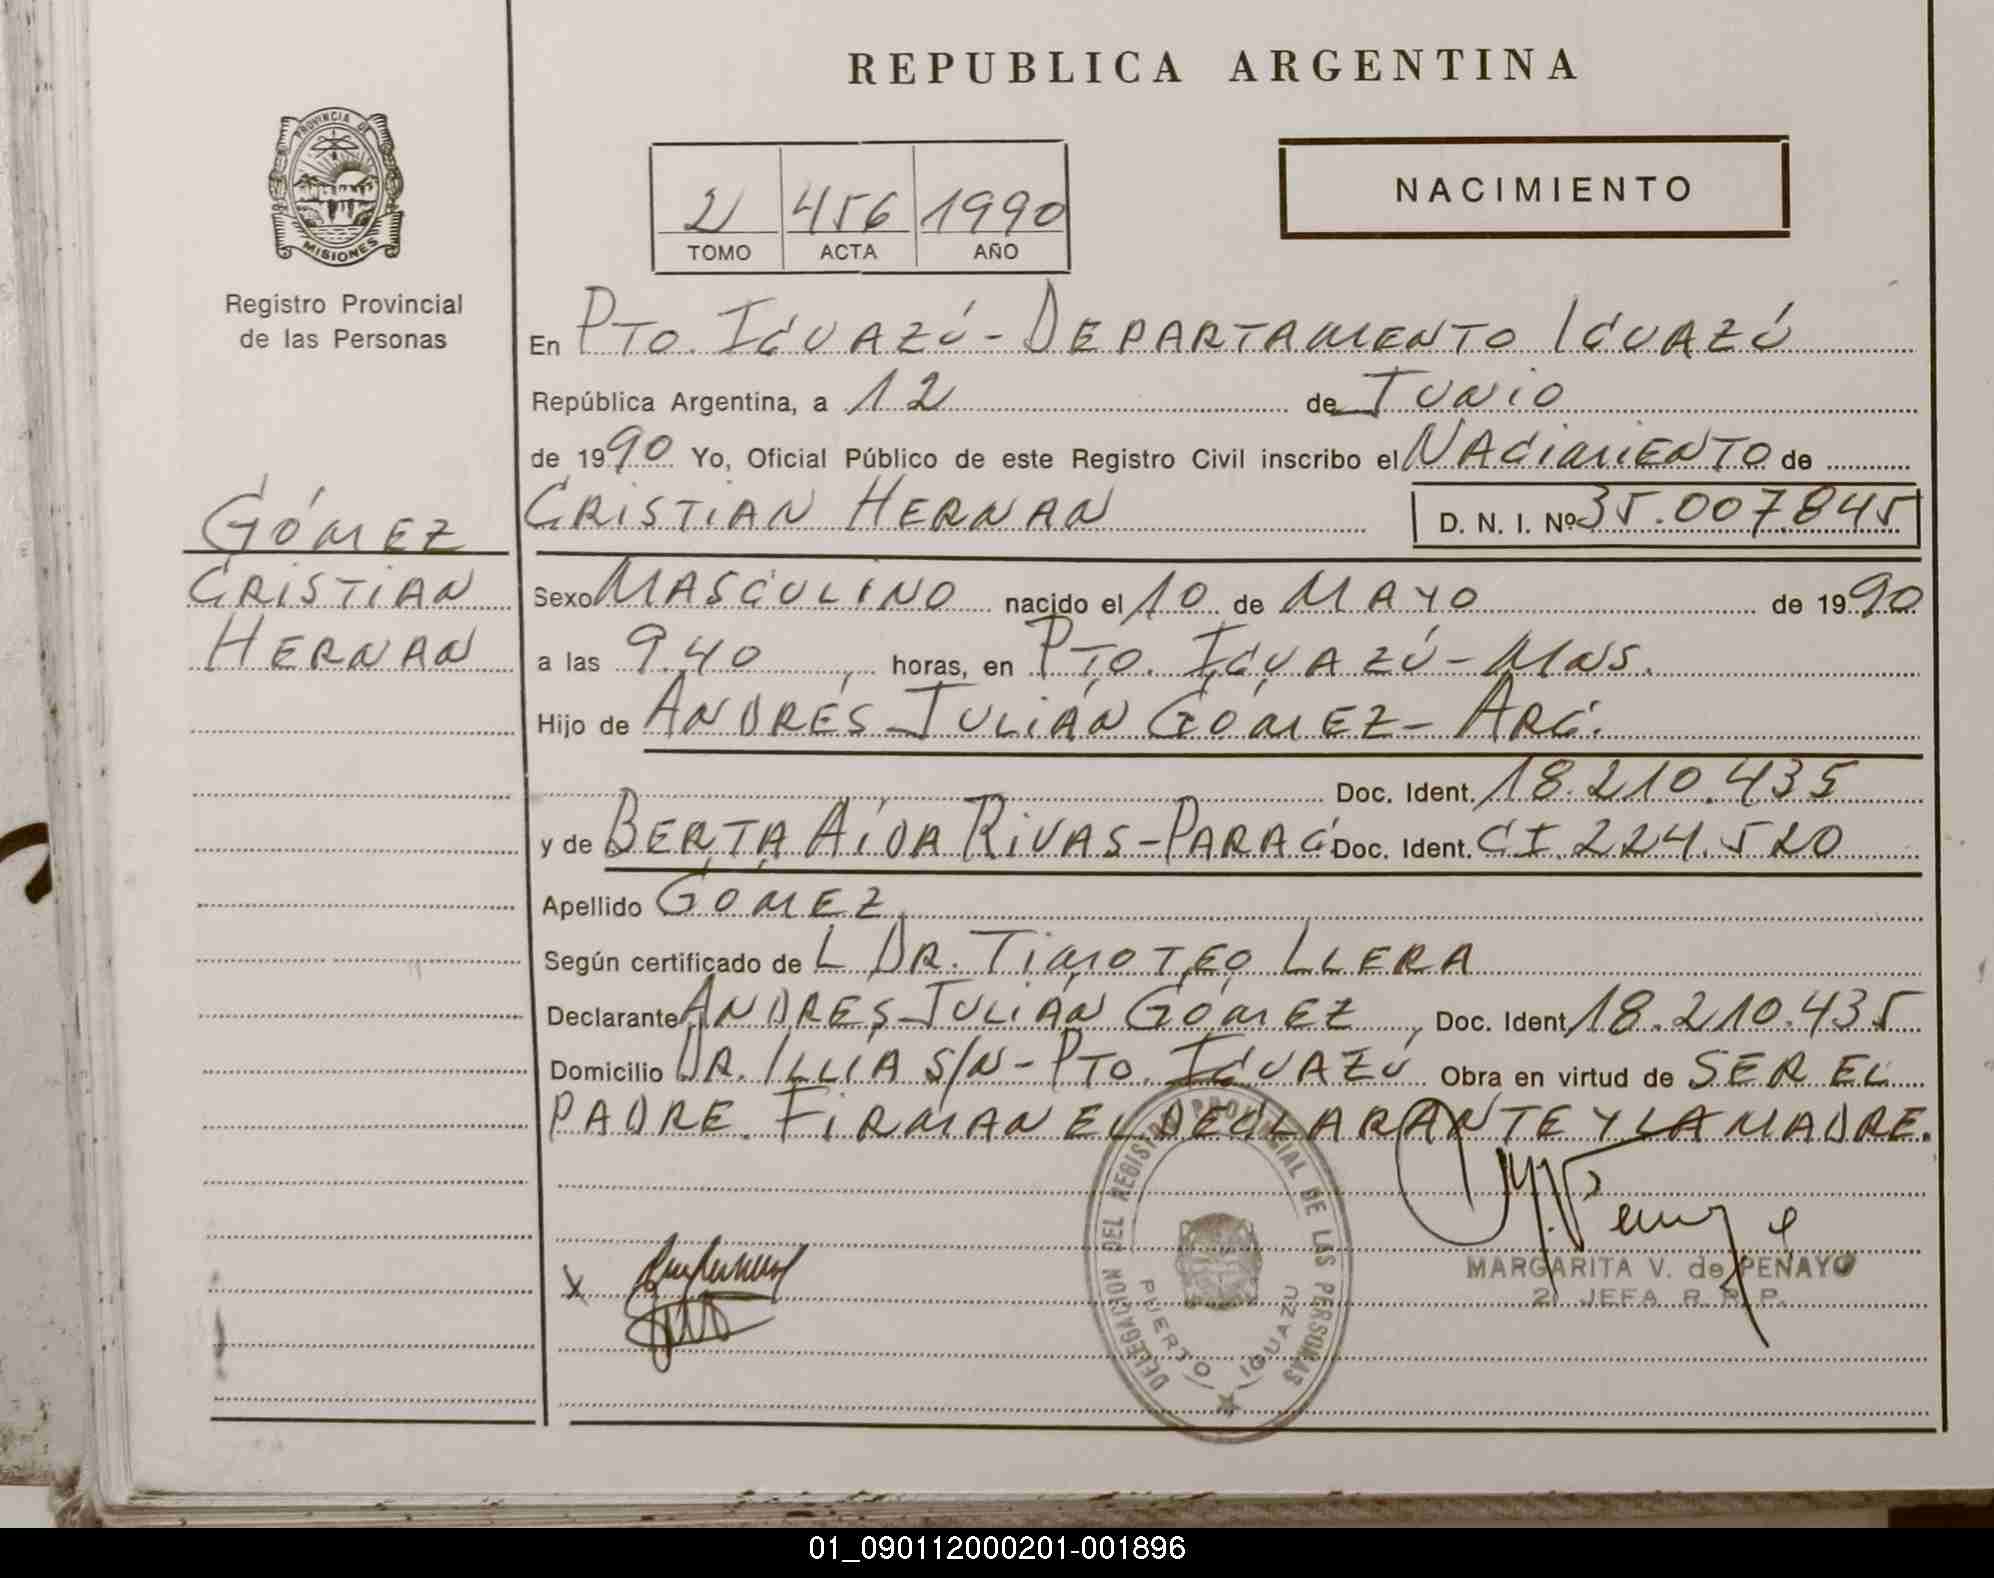 REPUBLICA ARGENTINA
PROVINCIA DE
MISIONES
Registro Provincial
de las Personas
NACIMIENTO
2 456 1990
TOMO ACTA AÑO
En PTO. IGUAZÚ - DEPARTAMENTO IGUAZÚ
República Argentina, a 12 de JUNIO
de 1990 Yo, Oficial Público de este Registro Civil inscribo el NACIMIENTO de
CRISTIAN HERNAN D. N. I. Nº 35.007.845
GÓMEZ
CRISTIAN
HERNAN
Sexo MASCULINO nacido el 10 de MAYO de 1990
a las 9.40 horas, en PTO. IGUAZÚ - MNS.
Hijo de ANDRÉS JULIÁN GÓMEZ - ARG.
Doc. Ident. 18.210.435
y de BERTA AÍDA RIVAS - PARAG Doc. Ident. CI 224.520
Apellido GÓMEZ
Según certificado de L DR. TIMOTEO LLERA
Declarante ANDRÉS JULIÁN GÓMEZ, Doc. Ident. 18.210.435
Domicilio DR. ILLIA S/N - PTO. IGUAZÚ Obra en virtud de SER EL
PADRE. FIRMAN EL DECLARANTE Y LA MADRE.
DELEGACION DEL REGISTRO PROVINCIAL DE LAS PERSONAS
PUERTO IGUAZU
X
MARGARITA V. de PENAYO
2ª JEFA R. R. P.
01_090112000201-001896